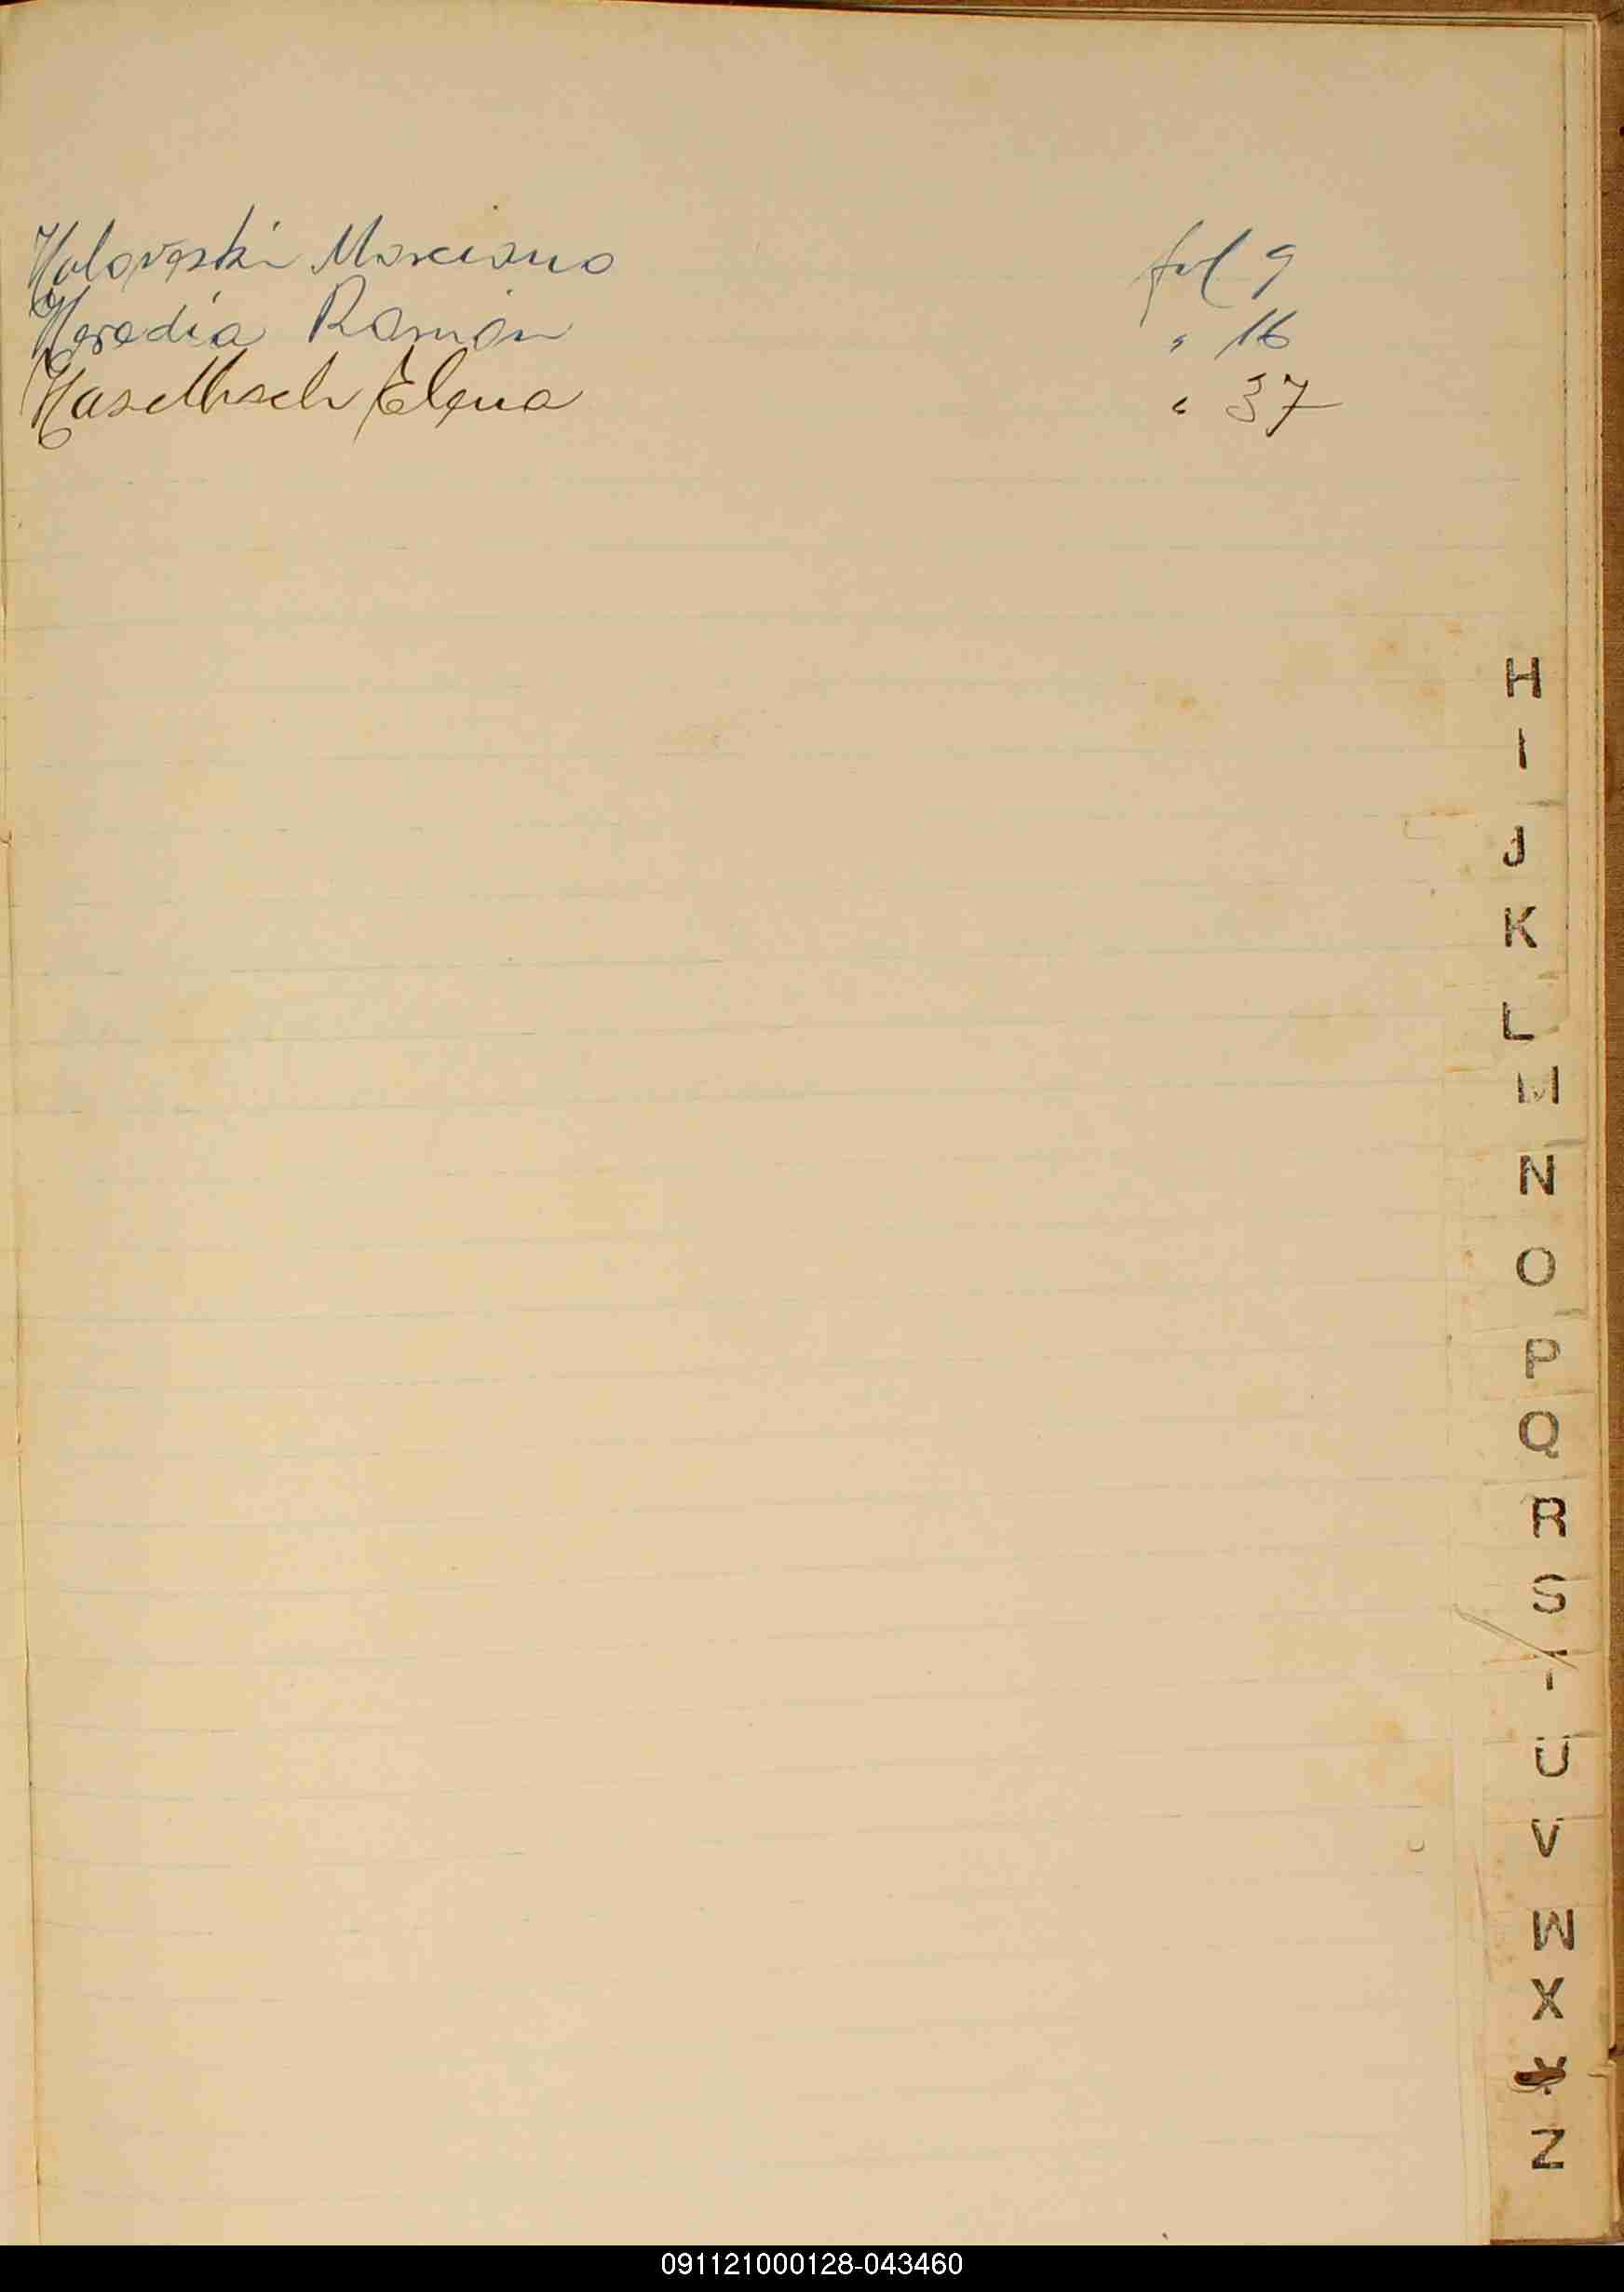 Holoveski Marciano fol 9
Heredia Ramón " 16
Haselbsch Elena " 37
H
I
J
K
L
M
N
O
P
Q
R
S
T
U
V
W
X
Y
Z
091121000128-043460